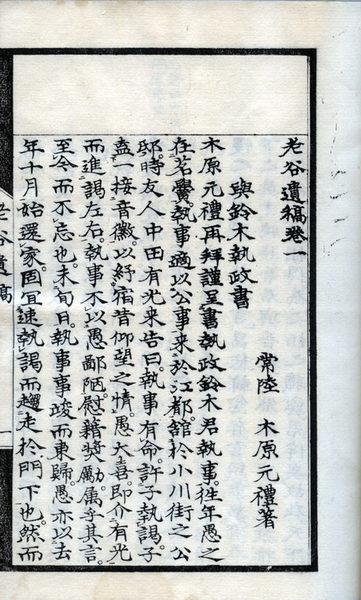 老谷遺稿卷一
常陸 木原元禮著
與鈴木執政書
木原元禮再拜謹呈書執政鈴木君執事。往年愚之
在茗黌執事適以公事来於江都舘於小川街之公
邸。時友人中田有光来告曰。執事有命。許子執謁。子
盍一接音徽。以紓宿昔仰望之情。愚大喜。即介有光
而進謁左右。執事不以愚鄙陋。慰藉奨勵。厲乎其言。
至今而不忘也。未旬日。執事事竣而東歸。愚亦以去
年十月始還家。固宜速執謁而趨走於門下也。然而
老谷遺稿